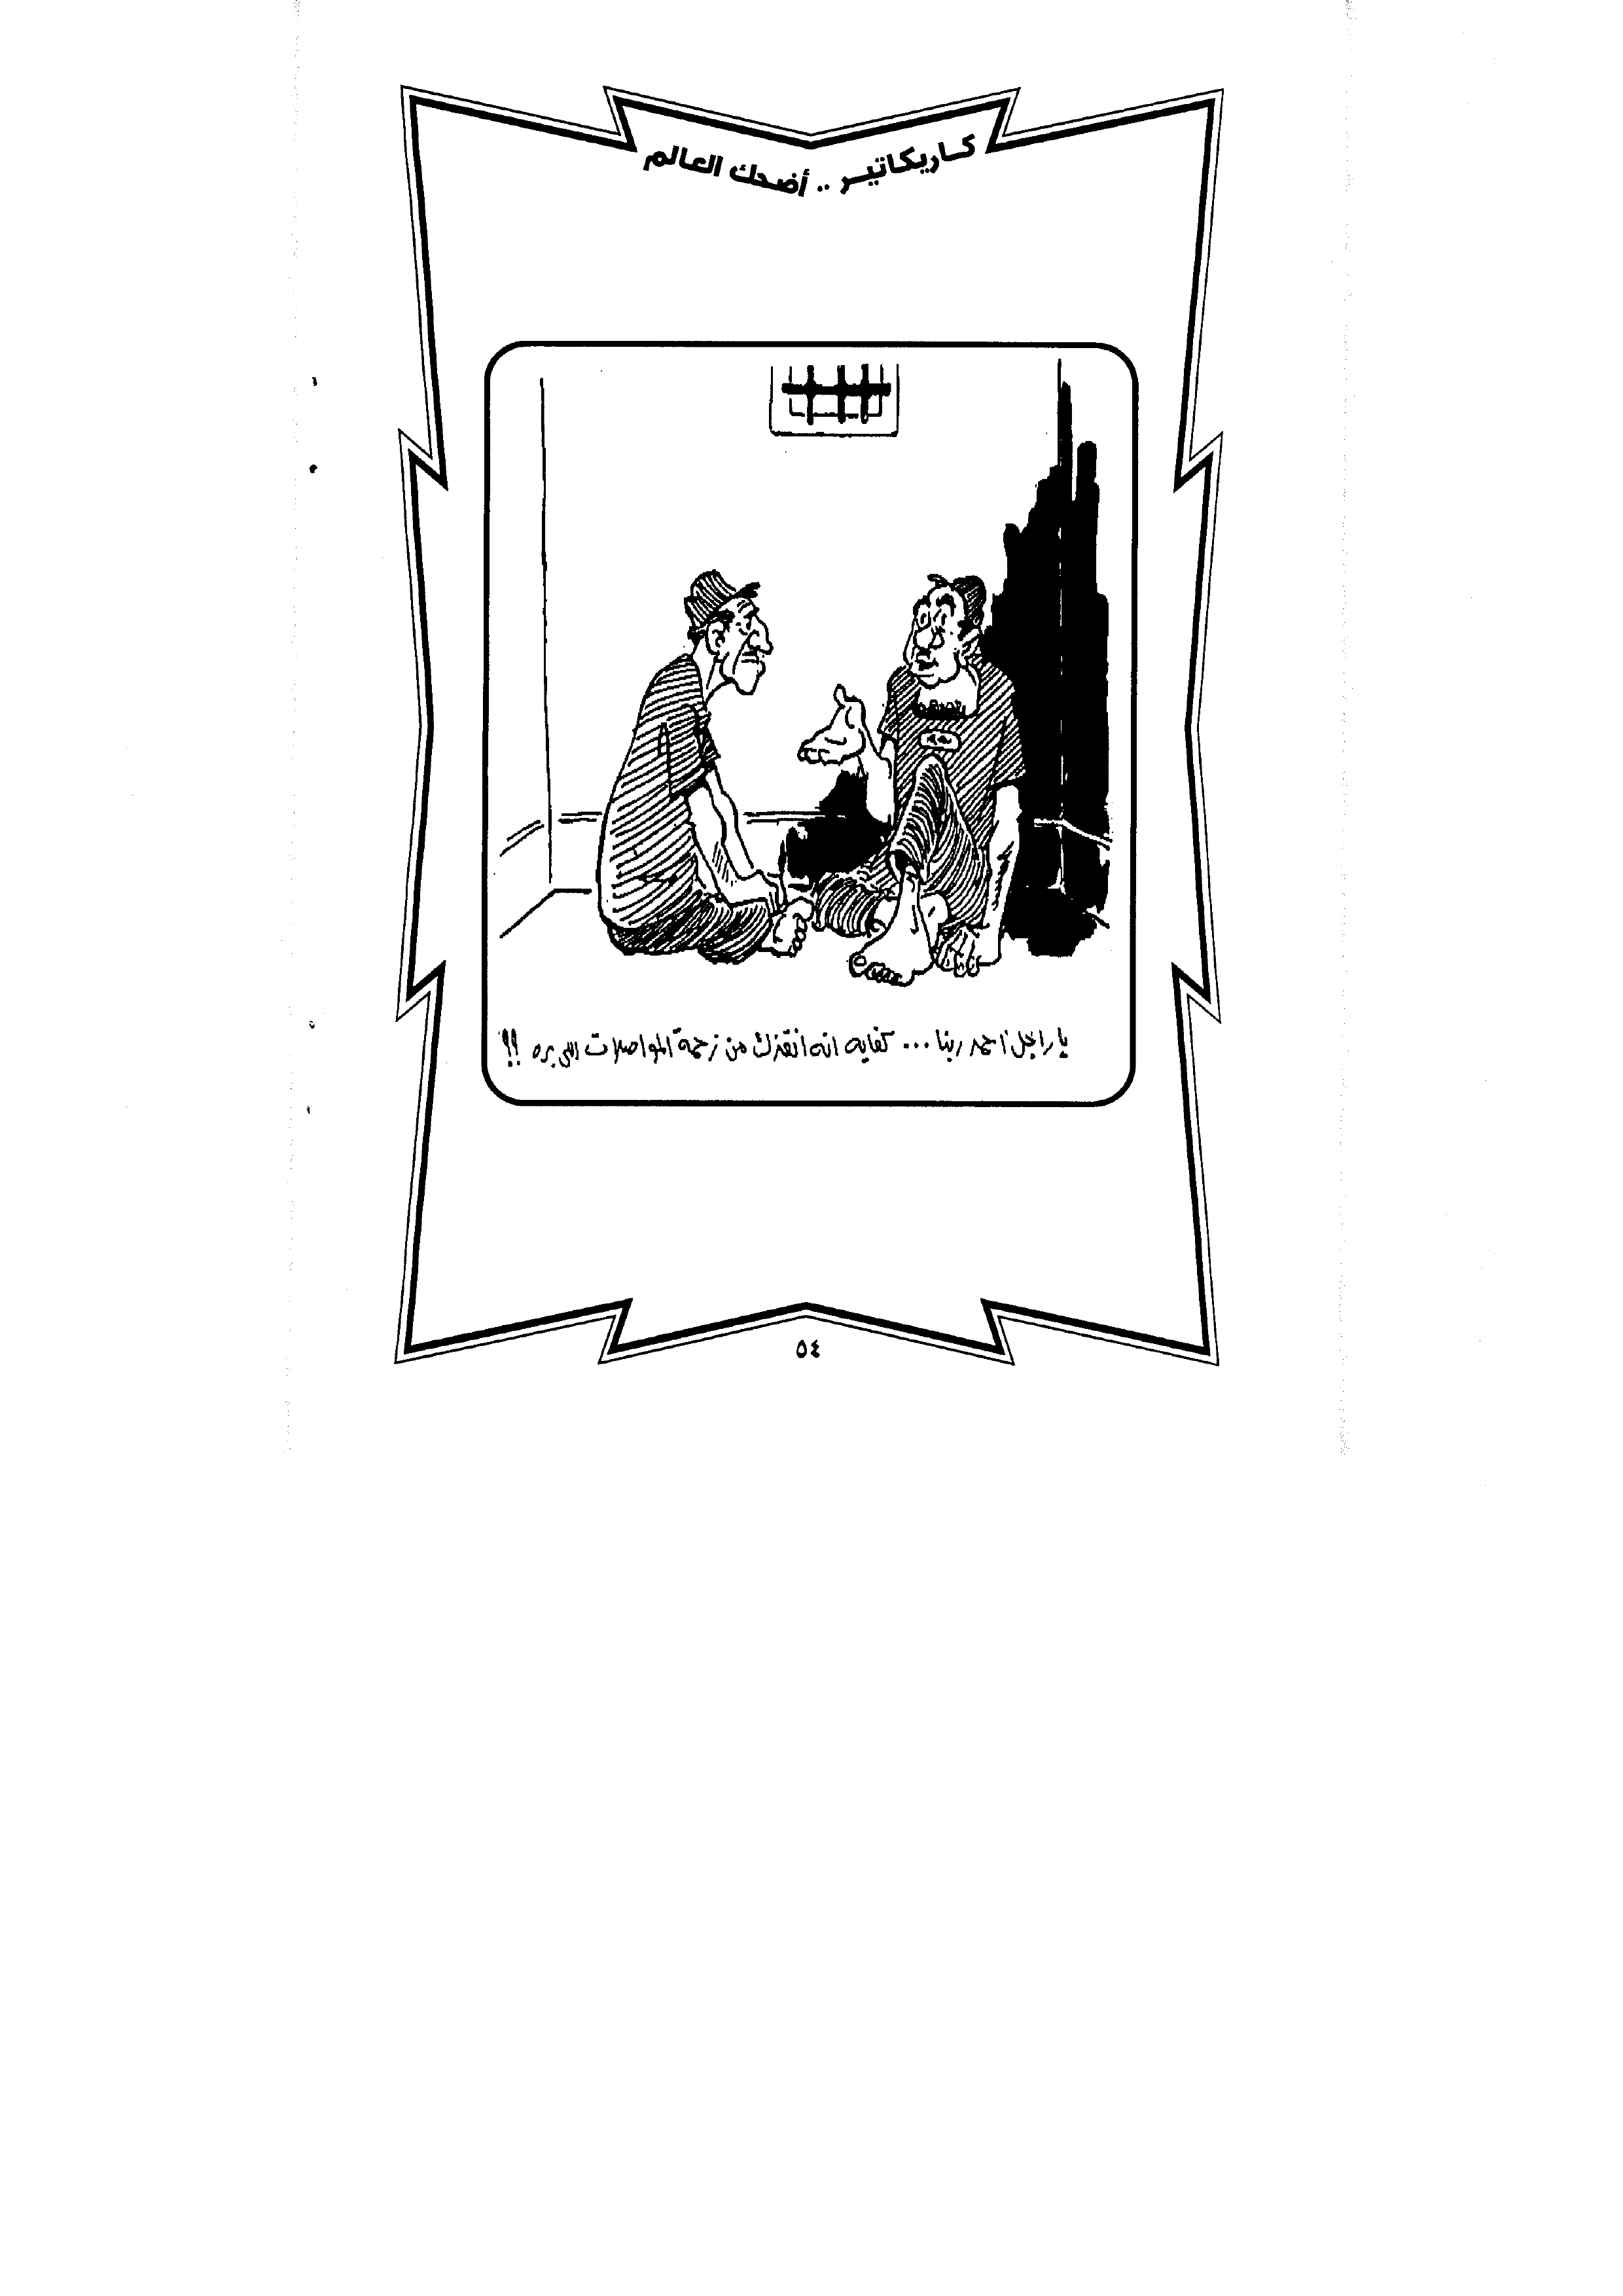 كاريكاتير .. أضحك العالم
يا راجل احمد ربنا ... كفايه انه انقذك من زحمة المواصلات اللى بره !!
٥٤